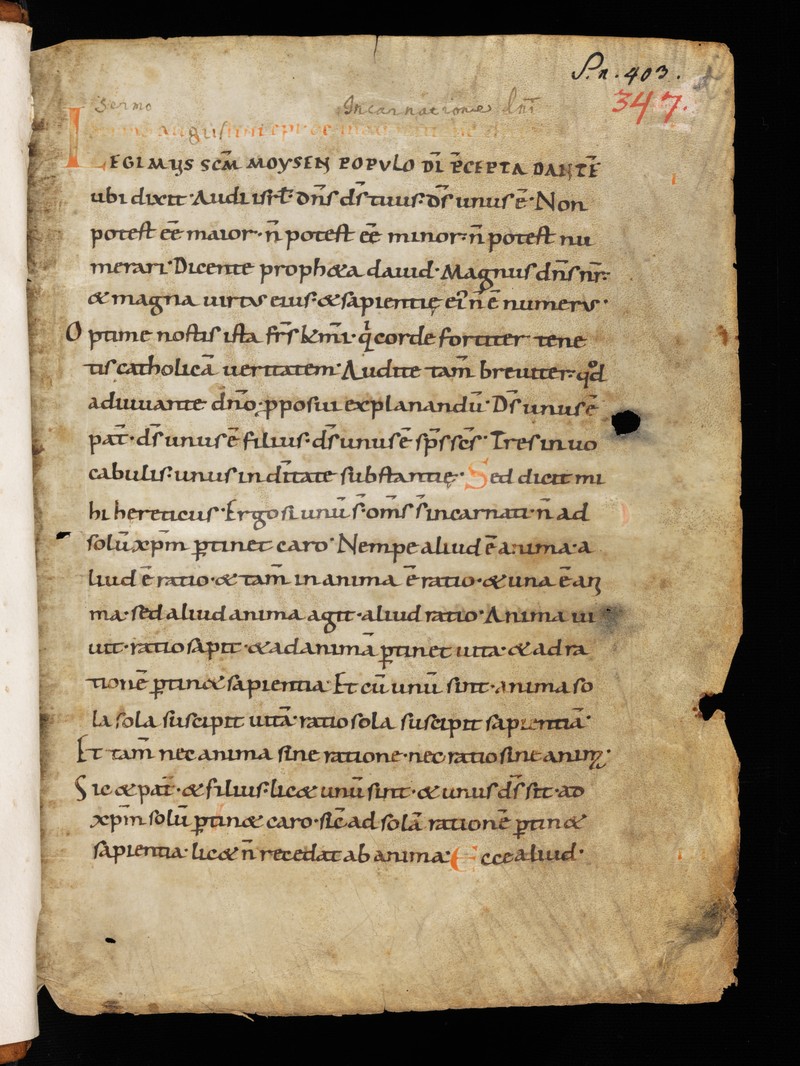 S. n. 403.
347.
Sermo Incarnatione dnī
augustini epi
LEGIMUS SCM̄ MOYSEN POPVLO DĪ P̄CEPTA DANTĒ
ubi dixit· Audi isrł· dn̄s ds̄ tuus· ds̄ unus ē· Non
potest eē maior· n̄ potest eē minor· n̄ potest nu
merari· Dicente propheta dauid· Magnus dn̄s nr̄·
& magna uirtus eius· & sapientię ei' n̄ ē numerus·
Optime nostis ista frs̄ km̄i· q̇ corde fortiter tene
tis catholicā ueritatem· Audite tam̄ breuiter· qd̄
adiuuante dnō· pposui explanandū· Ds̄ unus ē
pat̄· ds̄ unus ē filius· ds̄ unus ē sps̄ scs̄· Tres in uo
cabulis· unus in ditate substantię· Sed dicit mi
hi hereticus· Ergo si unū s̄· oms̄ s̄ incarnati· n̄ ad
solū xpm̄ ꝑtinet caro· Nempe aliud ē anima· a
liud ē ratio· & tam̄ in anima ē ratio· & una ē ani
ma· sed aliud anima agit· aliud ratio· Anima ui
uit· ratio sapit· & ad animā ꝑtinet uita· & ad ra
tionē ꝑtin& sapientia· Et cū unū sint· anima so
la sola suscipit uitā· ratio sola suscipit sapientiā·
Et tam̄ nec anima sine ratione· nec ratio sine anima·
Sic & pat̄· & filius· lic& unū sint· & unus ds̄ sit· ad
xpm̄ solū ꝑtin& caro· sic̄ ad solā rationē ꝑtin&
sapientia· lic& n̄ recedat ab anima· Ecce aliud·